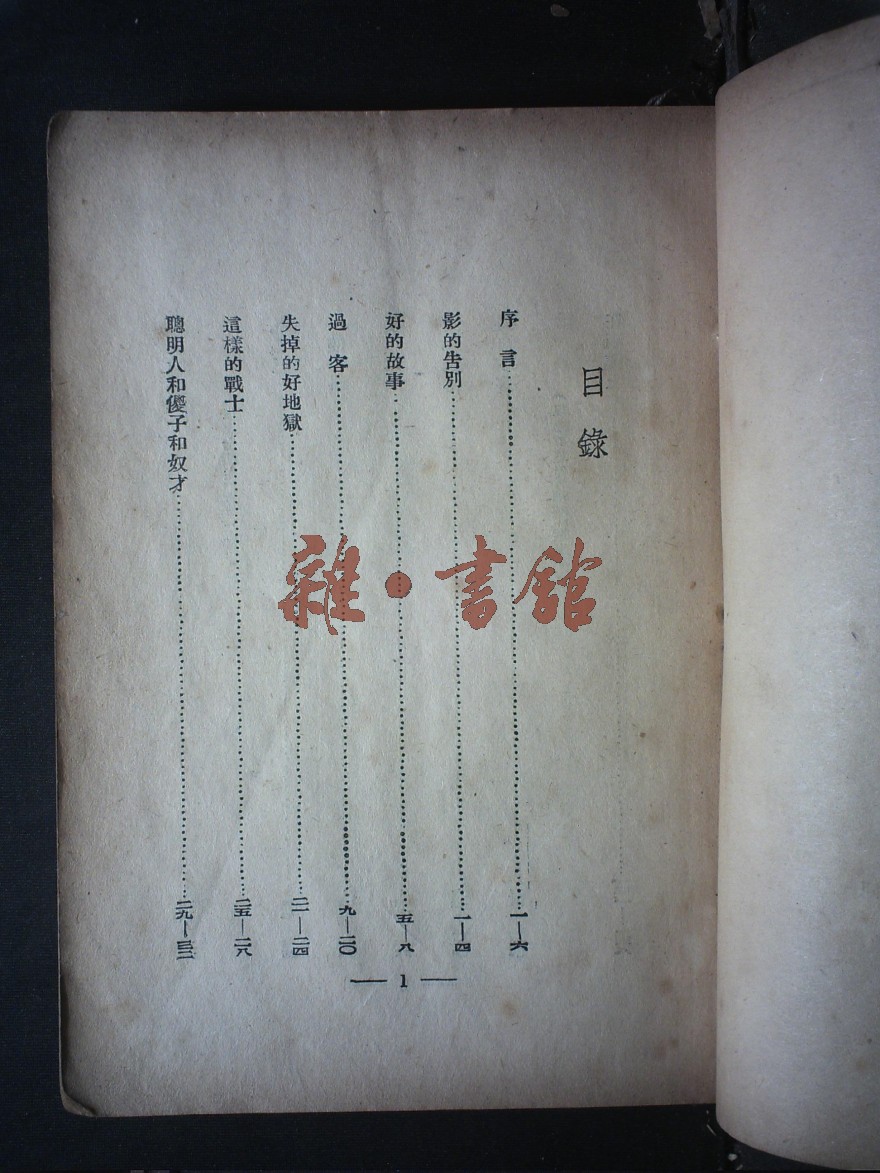 目錄
序言……一—六
影的告別……一—四
好的故事……五—八
過客……九—二〇
失掉的好地獄……二一—二四
這樣的戰士……二五—二八
聰明人和儍子和奴才……二九—三二
— 1 —
雜·書館